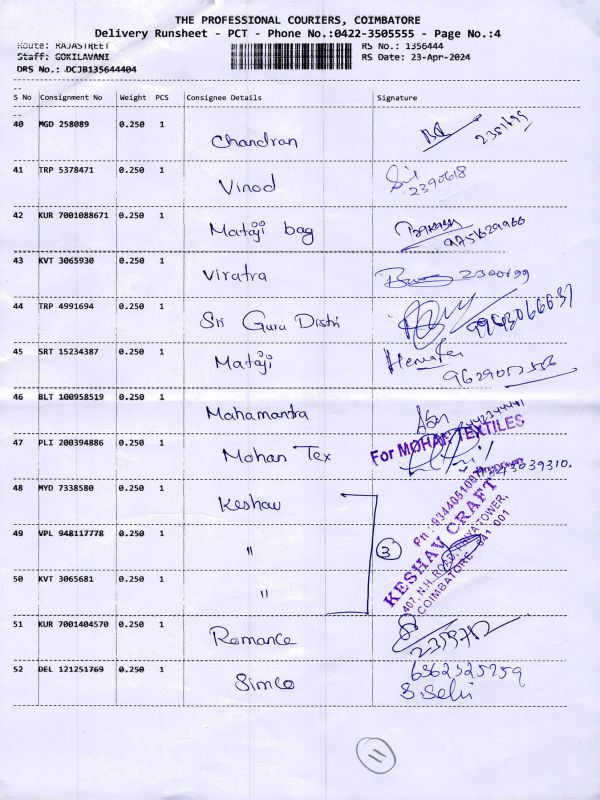 THE PROFESSIONAL COURIERS, COIMBATORE
Delivery Runsheet - PCT - Phone No.:0422-3505555 - Page No.:4
Route: RAJASTREET RS No.: 1356444
Staff: GOKILAVANI RS Date: 23-Apr-2024
DRS No.: DCJB135644404
S No Consignment No Weight PCS Consignee Details Signature
40 MGD 258089 0.250 1 Chandran
41 TRP 5378471 0.250 1 Vinod 2390618
42 KUR 7001088671 0.250 1 Mataji bag
43 KVT 3065930 0.250 1 Viratra
44 TRP 4991694 0.250 1 Sri Guru Distri
45 SRT 15234387 0.250 1 Mataji
46 BLT 100958519 0.250 1 Mahamantra
47 PLI 200394886 0.250 1 Mohan Tex For MOHAN TEXTILES
48 MYD 7338580 0.250 1 Keshav
49 VPL 948117778 0.250 1 "
50 KVT 3065681 0.250 1 "
3
KESHAV CRAFT
COIMBATORE - 641 001
51 KUR 7001404570 0.250 1 Romance
52 DEL 121251769 0.250 1 Simco 6362525759
11